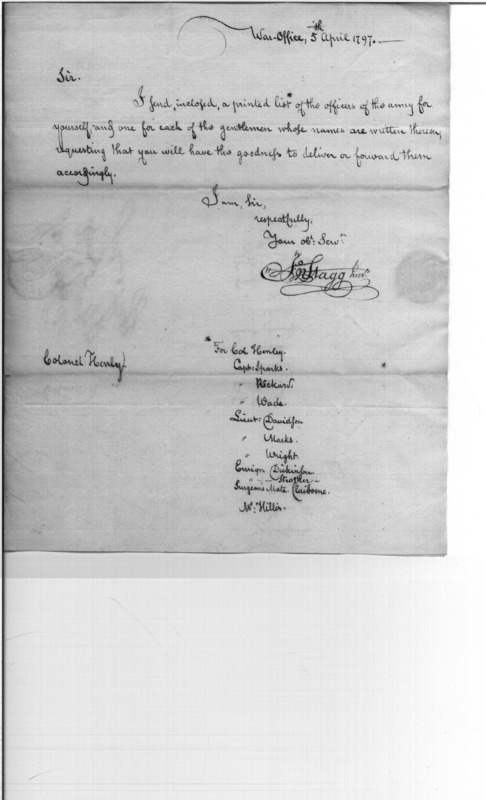 War-Office, 5th April 1797.
Sir.
I send, inclosed, a printed list * of the officers of the army for
yourself, and one for each of the gentlemen whose names are written thereon,
requesting that you will have the goodness to deliver or forward them
accordingly.
I am, Sir,
respectfully,
Your obt. Servt.
Jno Stagg Junr.
Colonel Henly.
* For Col Henley.
Capt: Sparks.
" Rickard.
" Wade.
Lieut: Davidson
" Marks.
" Wright.
Ensign Dickinson
" Strother
Surgeons Mate Claiborne.
Mr. Hillis.